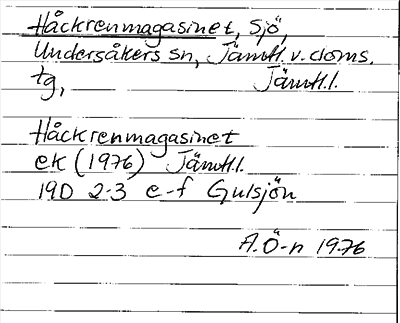 Håckrenmagasinet, Sjö,
Undersåkers sn, Jämtl. v. doms.
tg, Jämtl.l.
Håckrenmagasinet
ek (1976) Jämtl.l.
19D 2-3 e-f Gulsjön
A.Ö-n 1976